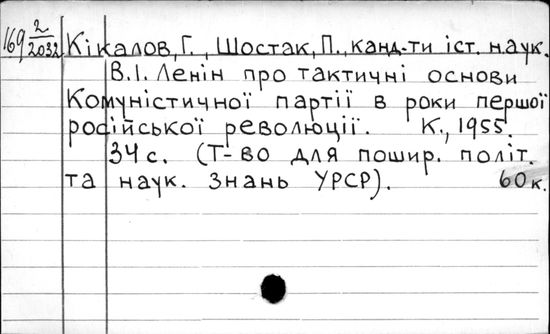 169 2/2032 Кікалов, Г., Шостак, П., канд-ти іст. наук.
В.І. Ленін про тактичні основи
Комуністичної партії в роки першої
російської революції. К., 1955.
34 с. (Т-во для пошир. політ.
та наук. знань УРСР). 60 к.